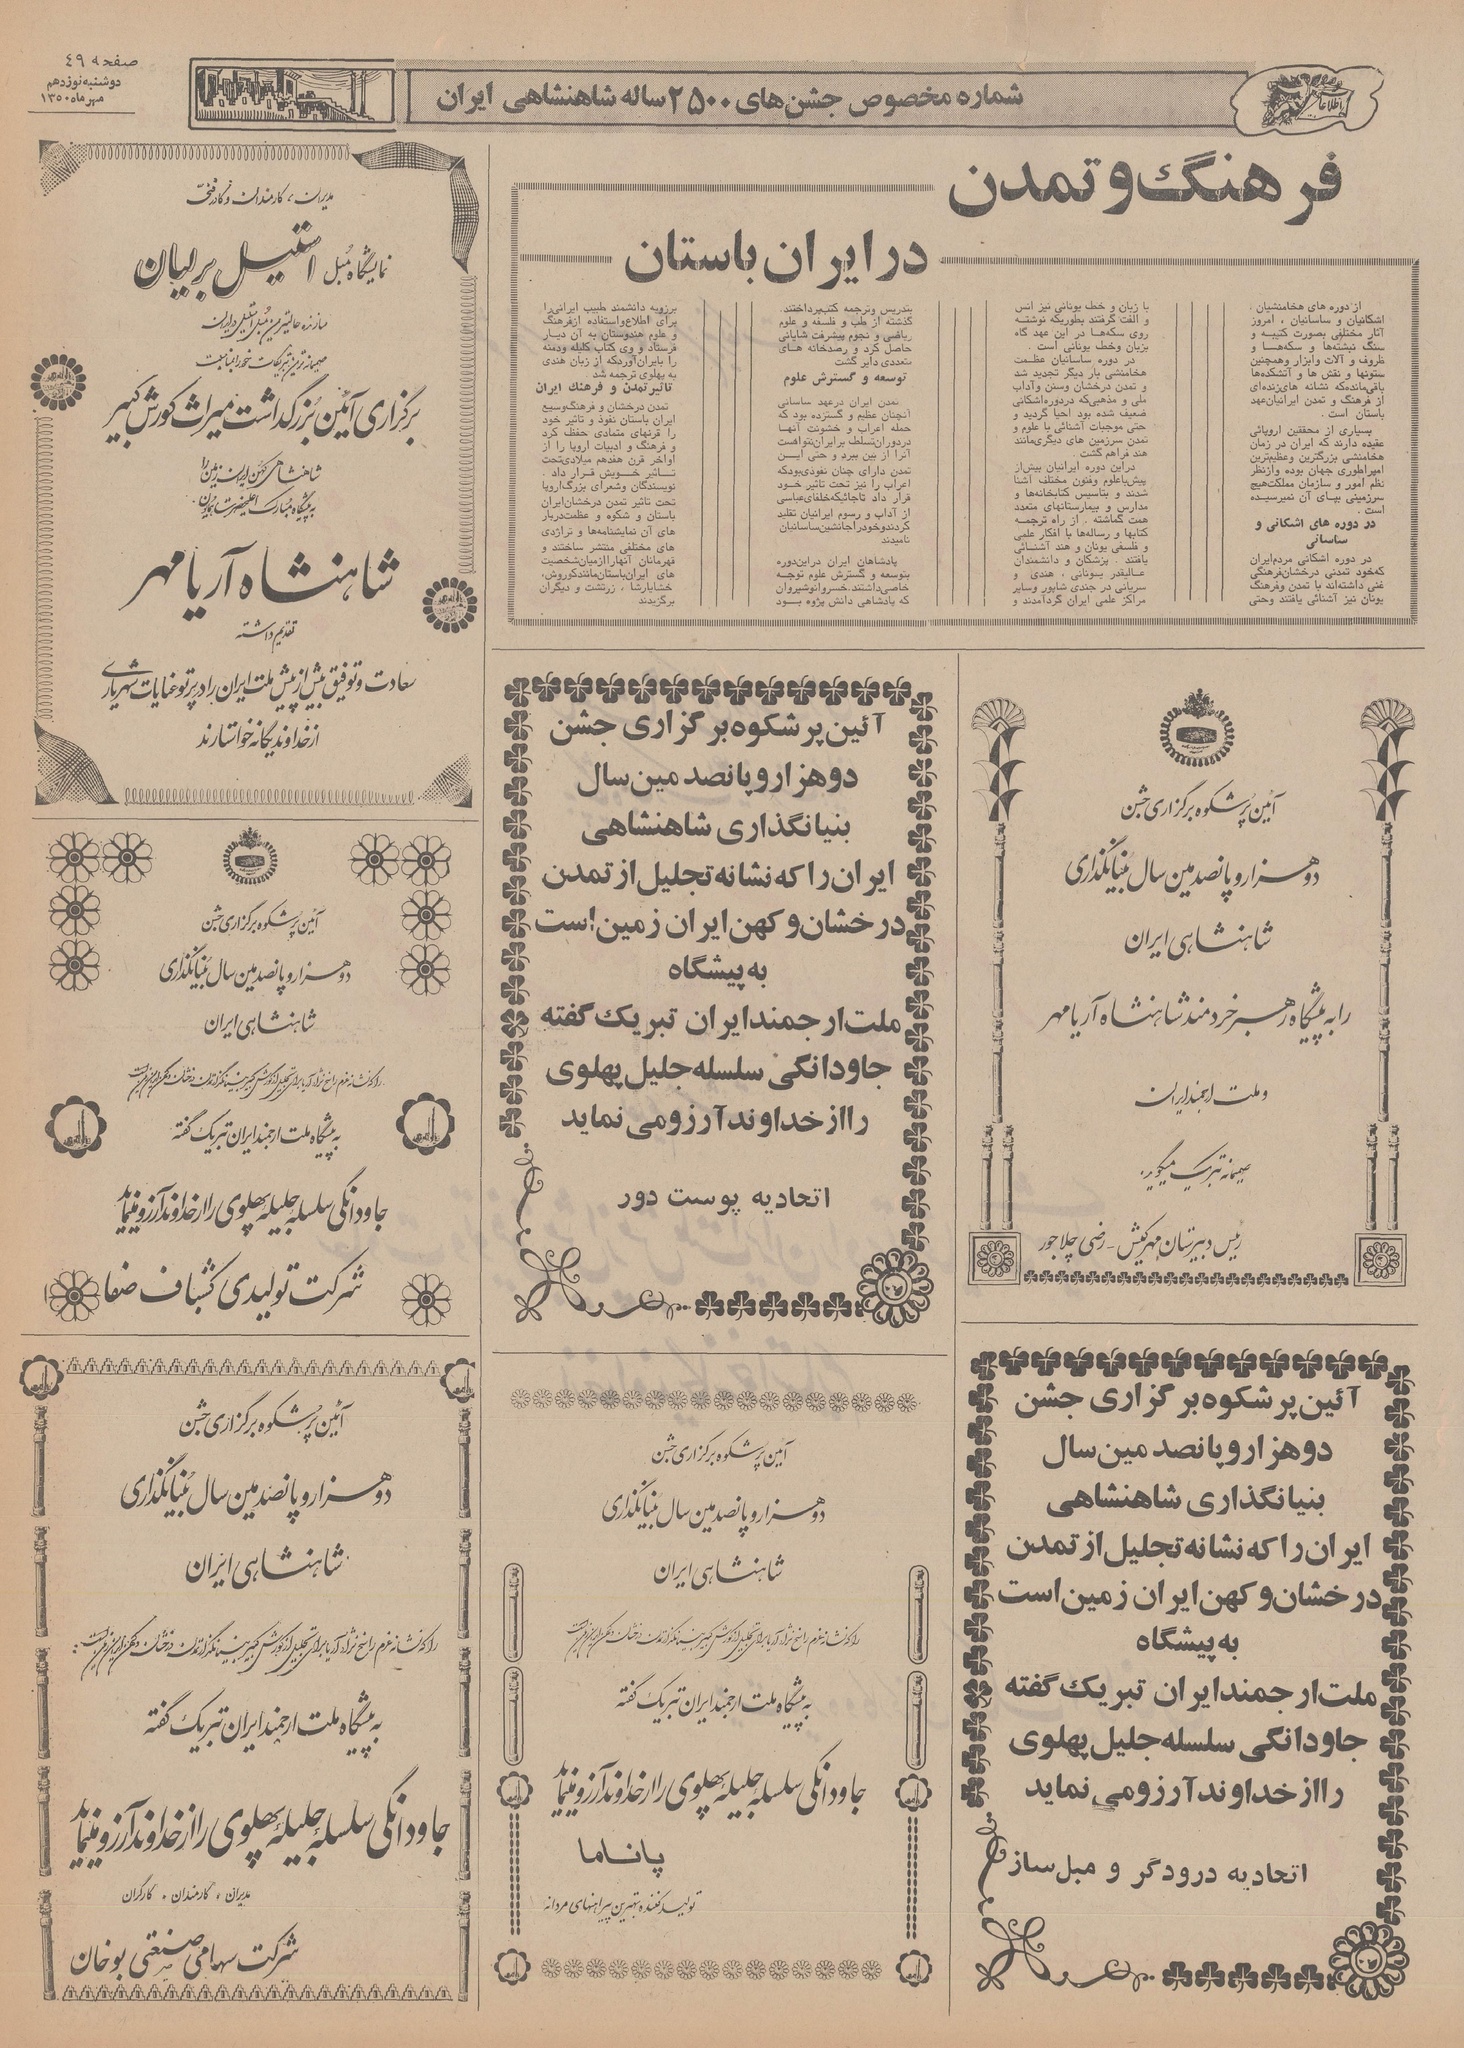 صفحه ٤٩
دوشنبه نوزدهم
مهر ماه ۱۳۵۰
شماره مخصوص جشن‌های ۲۵۰۰ ساله شاهنشاهی ایران
اطلاعات
فرهنگ و تمدن
در ایران باستان
از دوره های هخامنشیان .
اشکانیان و ساسانیان ، امروز
آثار مختلفی بصورت کتیبه و
سنگ نبشته‌ها و سکه‌ها و
ظروف و آلات وابزار وهمچنین
ستونها و نقش ها و آتشکده‌ها
باقی‌مانده‌که نشانه های‌زنده‌ای
از فرهنگ و تمدن ایرانیان‌عهد
باستان است .
بسیاری از محققین اروپائی
عقیده دارند که ایران در زمان
هخامنشی بزرگترین و عظیم‌ترین
امپراطوری جهان بوده وازنظر
نظم امور و سازمان مملکت‌هیچ
سرزمینی بپای آن نمیرسیده
است .
در دوره های اشکانی و
ساسانی
در دوره اشکانی مردم‌ایران
که‌خود تمدنی درخشان‌فرهنگی
غنی داشته‌اند با تمدن وفرهنگ
یونان نیز آشنائی یافتند وحتی
با زبان و خط یونانی نیز انس
و الفت گرفتند بطوریکه نوشته
روی سکه‌ها در این عهد گاه
بزبان وخط یونانی است .
در دوره ساسانیان عظمت
هخامنشی بار دیگر تجدید شد
و تمدن درخشان وسنن وآداب
ملی و مذهبی‌که دردوره‌اشکانی
ضعیف شده بود احیا گردید و
حتی موجبات آشنائی با علوم و
تمدن سرزمین های دیگری‌مانند
هند فراهم گشت .
دراین دوره ایرانیان بیش‌از
پیش‌باعلوم وفنون مختلف آشنا
شدند و بتاسیس کتابخانه‌ها و
مدارس و بیمارستانهای متعدد
همت گماشته . از راه ترجمه
کتابها و رساله‌ها با افکار علمی
و فلسفی یونان و هند آشنائی
یافتند . پزشکان و دانشمندان
عالیقدر یونانی ، هندی و
سریانی در جندی شاپور وسایر
مراکز علمی ایران گردآمدند و
بتدریس وترجمه کتب‌پرداختند.
گذشته از طب و فلسفه و علوم
ریاضی و نجوم پیشرفت شایانی
حاصل کرد و رصدخانه های
متعددی دایر گشت
توسعه و گسترش علوم
تمدن ایران درعهد ساسانی
آنچنان عظیم و گسترده بود که
حمله اعراب و خشونت آنها
دردوران‌تسلط برایران‌نتوانست
آنرا از بین ببرد و حتی این
تمدن دارای چنان نفوذی‌بودکه
اعراب را نیز تحت تاثیر خود
قرار داد تاجائیکه‌خلفای‌عباسی
از آداب و رسوم ایرانیان تقلید
کردندوخودراجانشین‌ساسانیان
نامیدند
پادشاهان ایران دراین‌دوره
بتوسعه و گسترش علوم توجه
خاصی‌داشتند.خسروانوشیروان
که پادشاهی دانش پژوه بود
برزویه دانشمند طبیب ایرانی‌را
برای اطلاع‌واستفاده ازفرهنگ
و علوم هندوستان به آن دیار
فرستاد و وی کتاب کلیله ودمنه
را بایران‌آوردکه از زبان هندی
به پهلوی ترجمه شد .
تاثیر تمدن و فرهنگ ایران
تمدن درخشان و فرهنگ‌وسیع
ایران باستان نفوذ و تاثیر خود
را قرنهای متمادی حفظ کرد
و فرهنگ و ادبیات اروپا را از
اواخر قرن هفدهم میلادی‌تحت
تاثیر خویش قرار داد .
نویسندگان وشعرای بزرگ‌اروپا
تحت تاثیر تمدن درخشان‌ایران
باستان و شکوه و عظمت‌دربار
های آن نمایشنامه‌ها و تراژدی
های مختلفی منتشر ساختند و
قهرمانان آنهارا ازمیان‌شخصیت
های ایران‌باستان‌مانندکوروش،
خشایارشا ، زرتشت و دیگران
برگزیدند
مدیران ، کارمندان و کادر فنی
نمایشگاه مبل استیل برلیان
سازنده عالیترین مبل استیل در ایران
صمیمانه‌ترین تبریکات خود را بمناسبت
برگزاری آئین بزرگداشت میراث کورش کبیر
شاهنشاهی کهن ایران زمین را
به پیشگاه مبارک اعلیحضرت همایون
شاهنشاه آریامهر
تقدیم داشته
سعادت و توفیق بیش از پیش ملت ایران را در پرتو عنایات شهریاری
از خداوند یگانه خواستارند
آئین پر شکوه برگزاری جشن
دو هزار و پانصد مین سال
بنیانگذاری شاهنشاهی
ایران را که نشانه تجلیل از تمدن
درخشان و کهن ایران زمین است
به پیشگاه
ملت ارجمند ایران تبریک گفته
جاودانگی سلسله جلیل پهلوی
را از خداوند آرزو می نماید
اتحادیه پوست دور
آئین پرشکوه برگزاری جشن
دو هزار و پانصدمین سال بنیانگذاری
شاهنشاهی ایران
را به پیشگاه رهبر خردمند شاهنشاه آریامهر
و ملت ارجمند ایران
صمیمانه تبریک میگوید.
رئیس دبیرستان مهرکیش - رضی چلاجور
آئین پرشکوه برگزاری جشن
دو هزار و پانصدمین سال بنیانگذاری
شاهنشاهی ایران
را که نشانه عزم راسخ نژاد آریا برای تجلیل از کورش کبیر بنیانگزار تمدن درخشان و کهن ایران زمین است
به پیشگاه ملت ارجمند ایران تبریک گفته
جاودانگی سلسله جلیله پهلوی را از خداوند آرزو مینماید
شرکت تولیدی کشباف صفا
آئین پرشکوه برگزاری جشن
دو هزار و پانصدمین سال بنیانگذاری
شاهنشاهی ایران
را که نشانه عزم راسخ نژاد آریا برای تجلیل از کورش کبیر بنیانگزار تمدن درخشان و کهن ایران زمین است
به پیشگاه ملت ارجمند ایران تبریک گفته
جاودانگی سلسله جلیله پهلوی را از خداوند آرزو مینماید
مدیران ، کارمندان ، کارگران
شرکت سهامی صنعتی بوخان
آئین پرشکوه برگزاری جشن
دو هزار و پانصدمین سال بنیانگذاری
شاهنشاهی ایران
را که نشانه عزم راسخ نژاد آریا برای تجلیل از کورش کبیر بنیانگزار تمدن درخشان و کهن ایران زمین است
به پیشگاه ملت ارجمند ایران تبریک گفته
جاودانگی سلسله جلیله پهلوی را از خداوند آرزو مینماید
پاناما
تولید کننده بهترین پیراهنهای مردانه
آئین پر شکوه برگزاری جشن
دو هزار و پانصد مین سال
بنیانگذاری شاهنشاهی
ایران را که نشانه تجلیل از تمدن
درخشان و کهن ایران زمین است
به پیشگاه
ملت ارجمند ایران تبریک گفته
جاودانگی سلسله جلیل پهلوی
را از خداوند آرزو می نماید
اتحادیه درودگر و مبل ساز